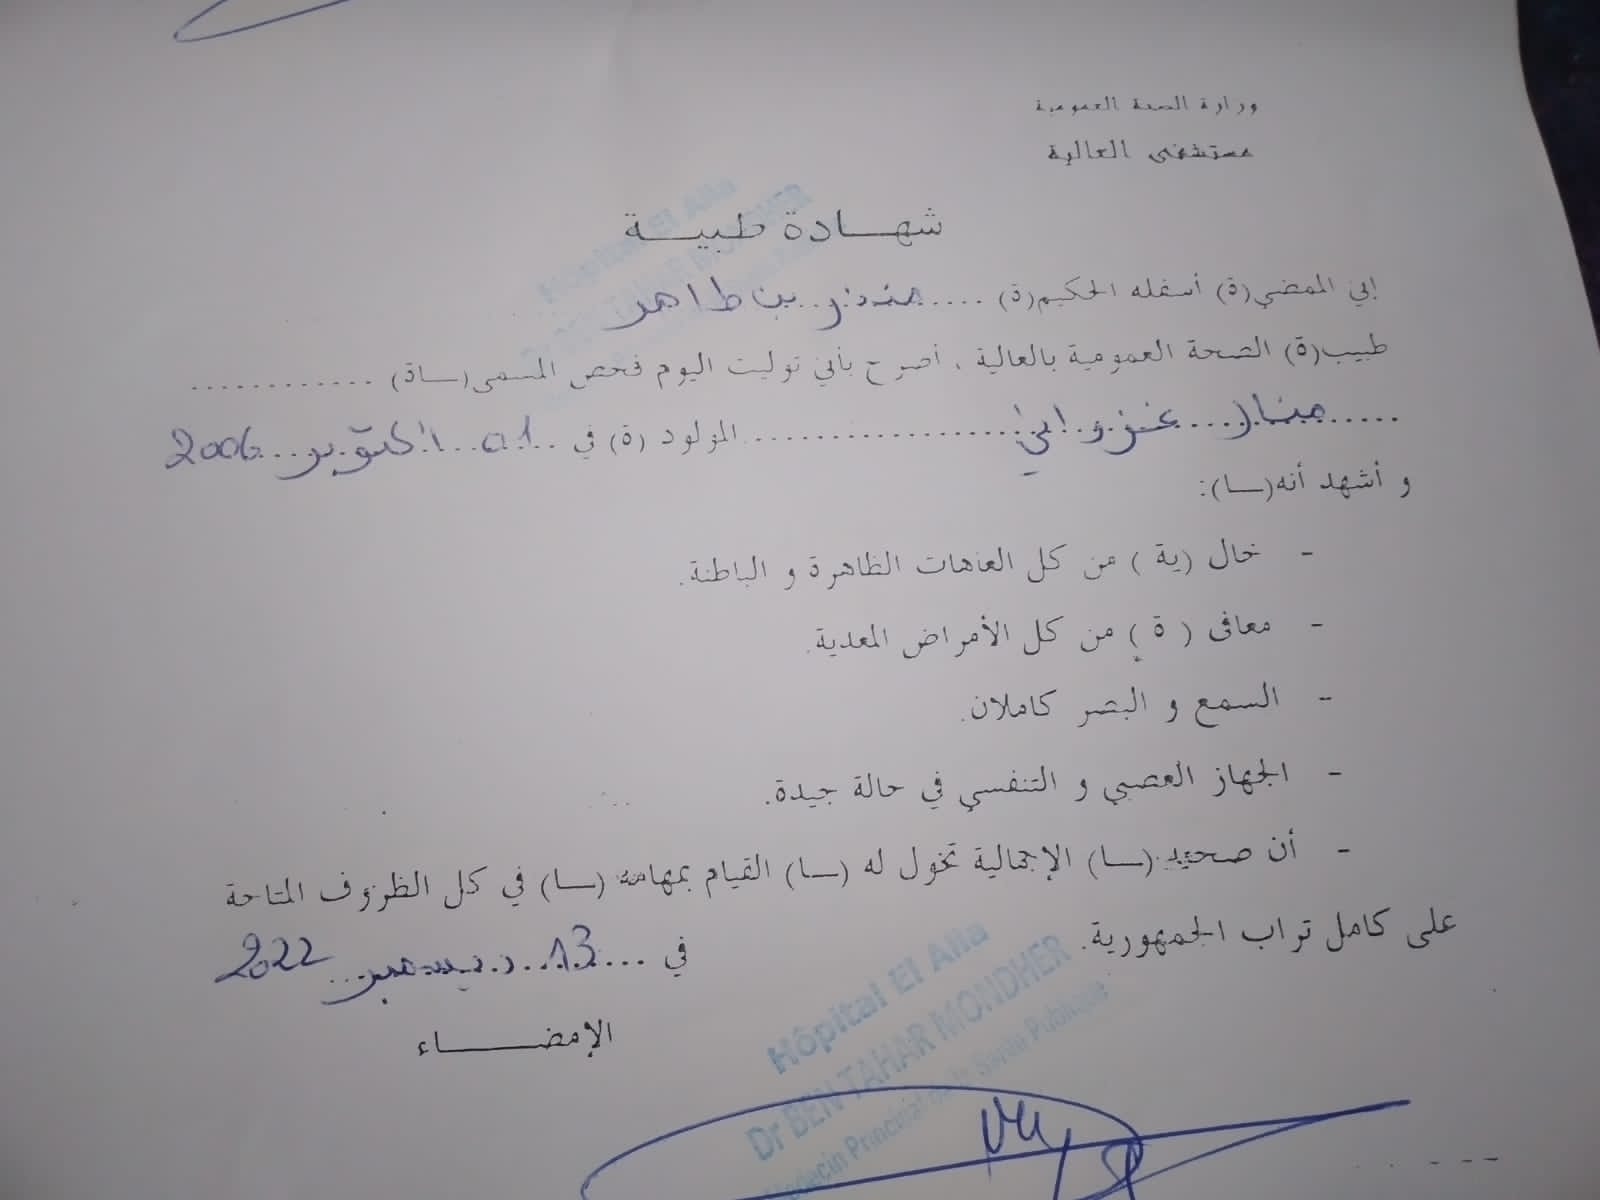 وزارة الصحة العمومية
مستشفى العالية
شهـــادة طبيـــة
إني الممضي(ة) أسفله الحكيم(ة) .... منذر بن طاهر
طبيب(ة) الصحة العمومية بالعالية ، أصرح بأني توليت اليوم فحص المسمى(ـــاة) ............
..... منار غزواني ................... المولود (ة) في ... 01 أكتوبر 2006
و أشهد أنه(ـــا):
- خال (ية ) من كل العاهات الظاهرة و الباطنة.
- معافى ( ة ) من كل الأمراض المعدية.
- السمع و البصر كاملان.
- الجهاز العصبي و التنفسي في حالة جيدة.
- أن صحته (ـــا) الإجمالية تخول له (ـــا) القيام بمهامه (ـــا) في كل الظروف المتاحة
على كامل تراب الجمهورية.
في .... 13 ديسمبر 2022
الإمضـــــــاء
Hôpital El Alia
Dr BEN TAHAR MONDHER
Médecin Principal de la Santé Publique